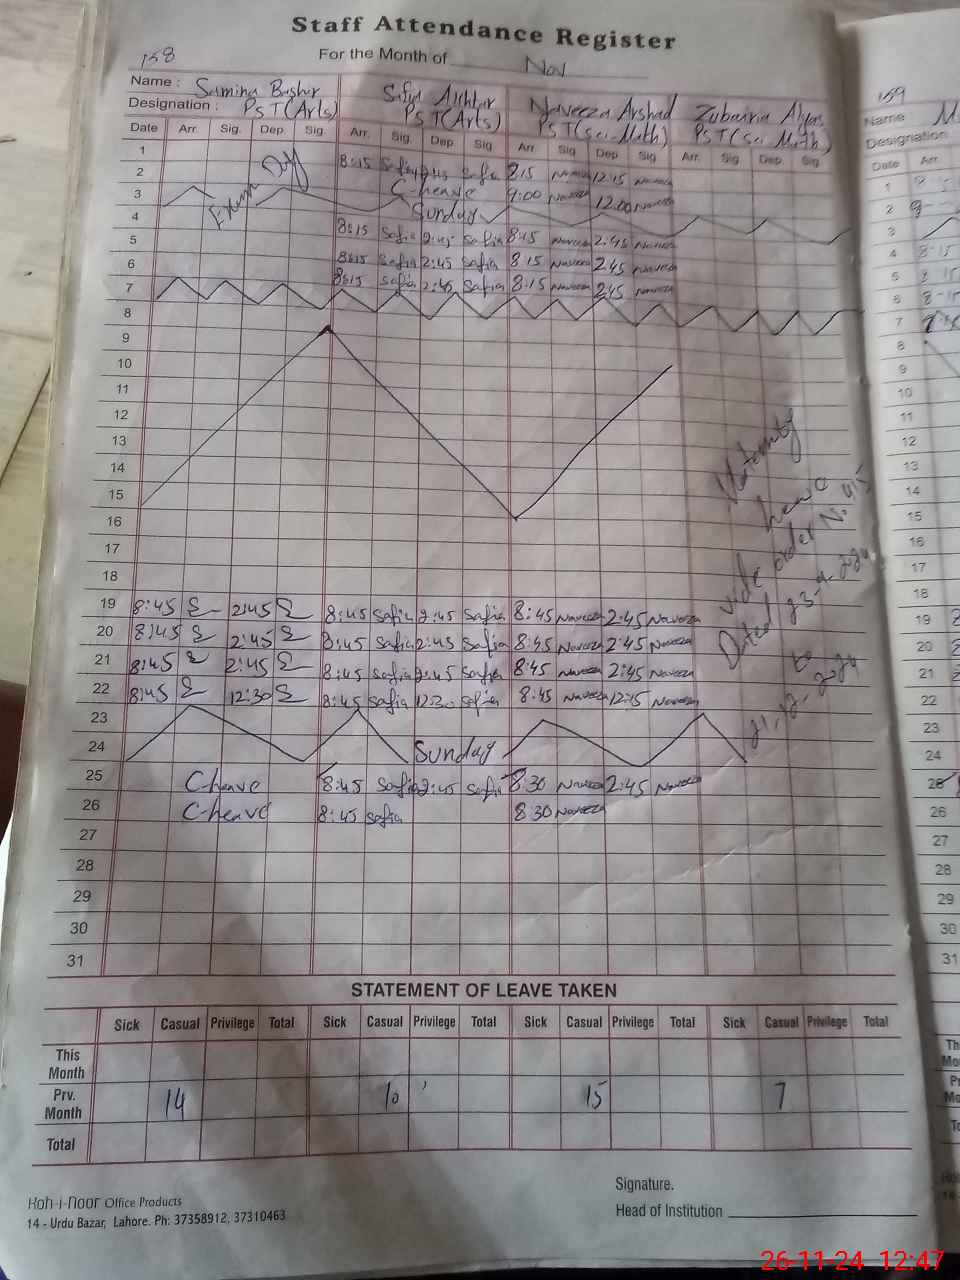 Staff Attendance Register
158
For the Month of Nov
Name : Samina Bashir Safia Akhtar Naveeza Arshad Zubairia
Designation : PST(Arts) PST(Arts) PST(Sci-Math) PST(Sci Math)
Date Arr. Sig. Dep Sig. Arr. Sig. Dep Sig Arr. Sig Dep Sig Arr. Sig. Dep Sig.
1
2 8:15 Safia 2:45 Safia 8:15 Naveeza 12:15 Naveeza
3 C-heave 9:00 Naveeza 12:00 Naveeza
Exam Off
4 Sunday
5 8:15 Safia 2:45 Safia 8:45 Naveeza 2:45 Naveeza
6 8:15 Safia 2:45 Safia 8:15 Naveeza 2:45 Naveeza
7 8:15 Safia 2:45 Safia 8:15 Naveeza 2:45 Naveeza
8
9
10
11
12
13
14
15
16
17
18
Maternity
heave
vide order No. 415
Dated 23-9-2024
to
21.12.2024
19 8:45 2:45 8:45 Safia 2:45 Safia 8:45 Naveeza 2:45 Naveeza
20 8:45 2:45 8:45 Safia 2:45 Safia 8:45 Naveeza 2:45 Naveeza
21 8:45 2:45 8:45 Safia 2:45 Safia 8:45 Naveeza 2:45 Naveeza
22 8:45 12:30 8:45 Safia 12:30 Safia 8:45 Naveeza 12:45 Naveeza
23
24 Sunday
25 C-heave 8:45 Safia 2:45 Safia 8:30 Naveeza 2:45 Naveeza
26 C-heave 8:45 Safia 8:30 Naveeza
27
28
29
30
31
STATEMENT OF LEAVE TAKEN
Sick Casual Privilege Total Sick Casual Privilege Total Sick Casual Privilege Total Sick Casual Privilege Total
This
Month
Prv.
Month 14 10 15 7
Total
Signature.
Head of Institution
Koh-i-noor Office Products
14 - Urdu Bazar, Lahore. Ph: 37358912, 37310463
159
Name : M
Designation
Date Arr.
1
2
3
4 8-15
5 8-15
6 8-15
7
8
9
10
11
12
13
14
15
16
17
18
19
20
21
22
23
24
25
26
27
28
29
30
31
26-11-24 12:47